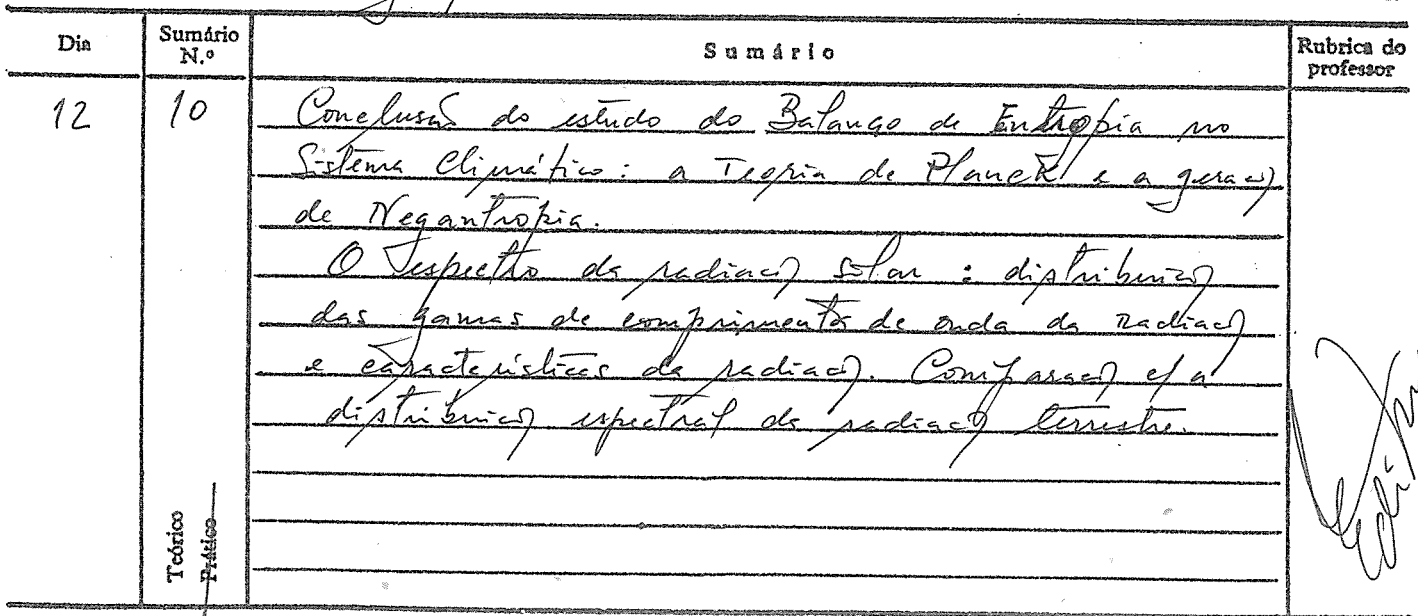 Dia
Sumário N.º
Sumário
Rubrica do professor
12
10
Conclusão do estudo do Balanço de Entropia no
Sistema Climático: a Teoria de Planck e a geração
de Negantropia.
O espectro da radiação solar: distribuição
das gamas de comprimentos de onda da radiação
e características da radiação. Comparação c/ a
distribuição espectral da radiação terrestre.
Teórico
Prático